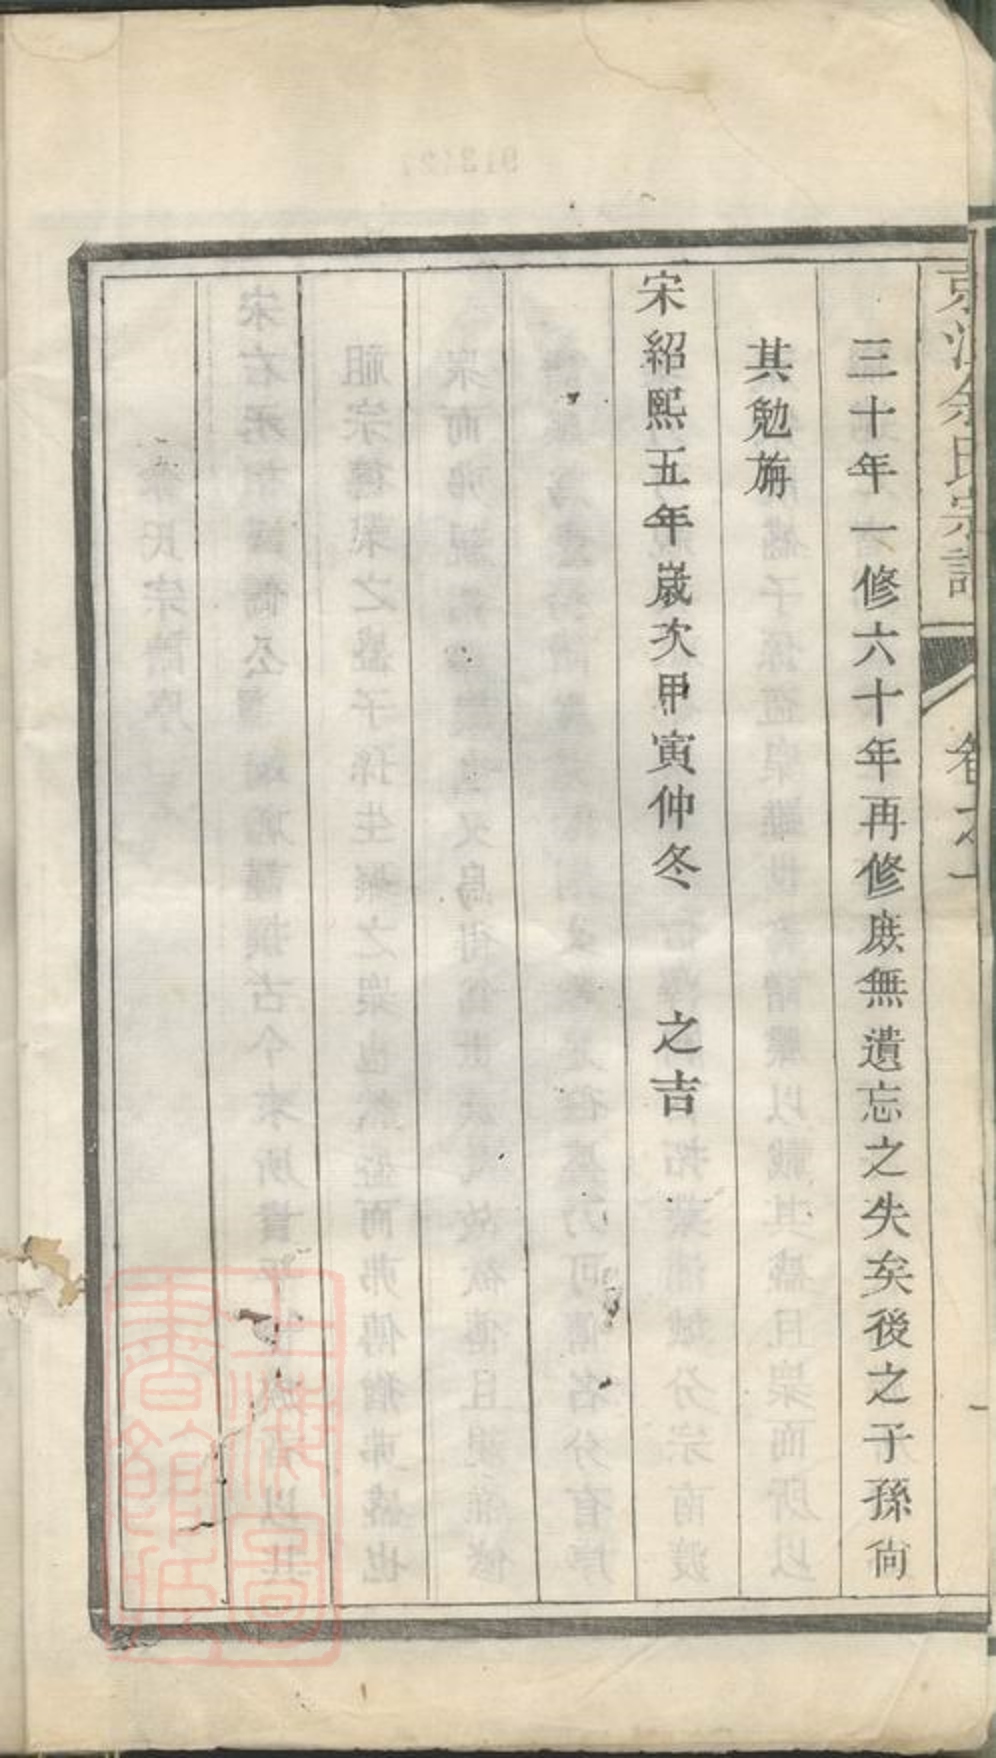 三十年一修六十年再修庶無遺忘之失矣後之子孫尙
其勉旃
宋紹熙五年歲次甲寅仲冬　之吉
氏宗譜
卷之一